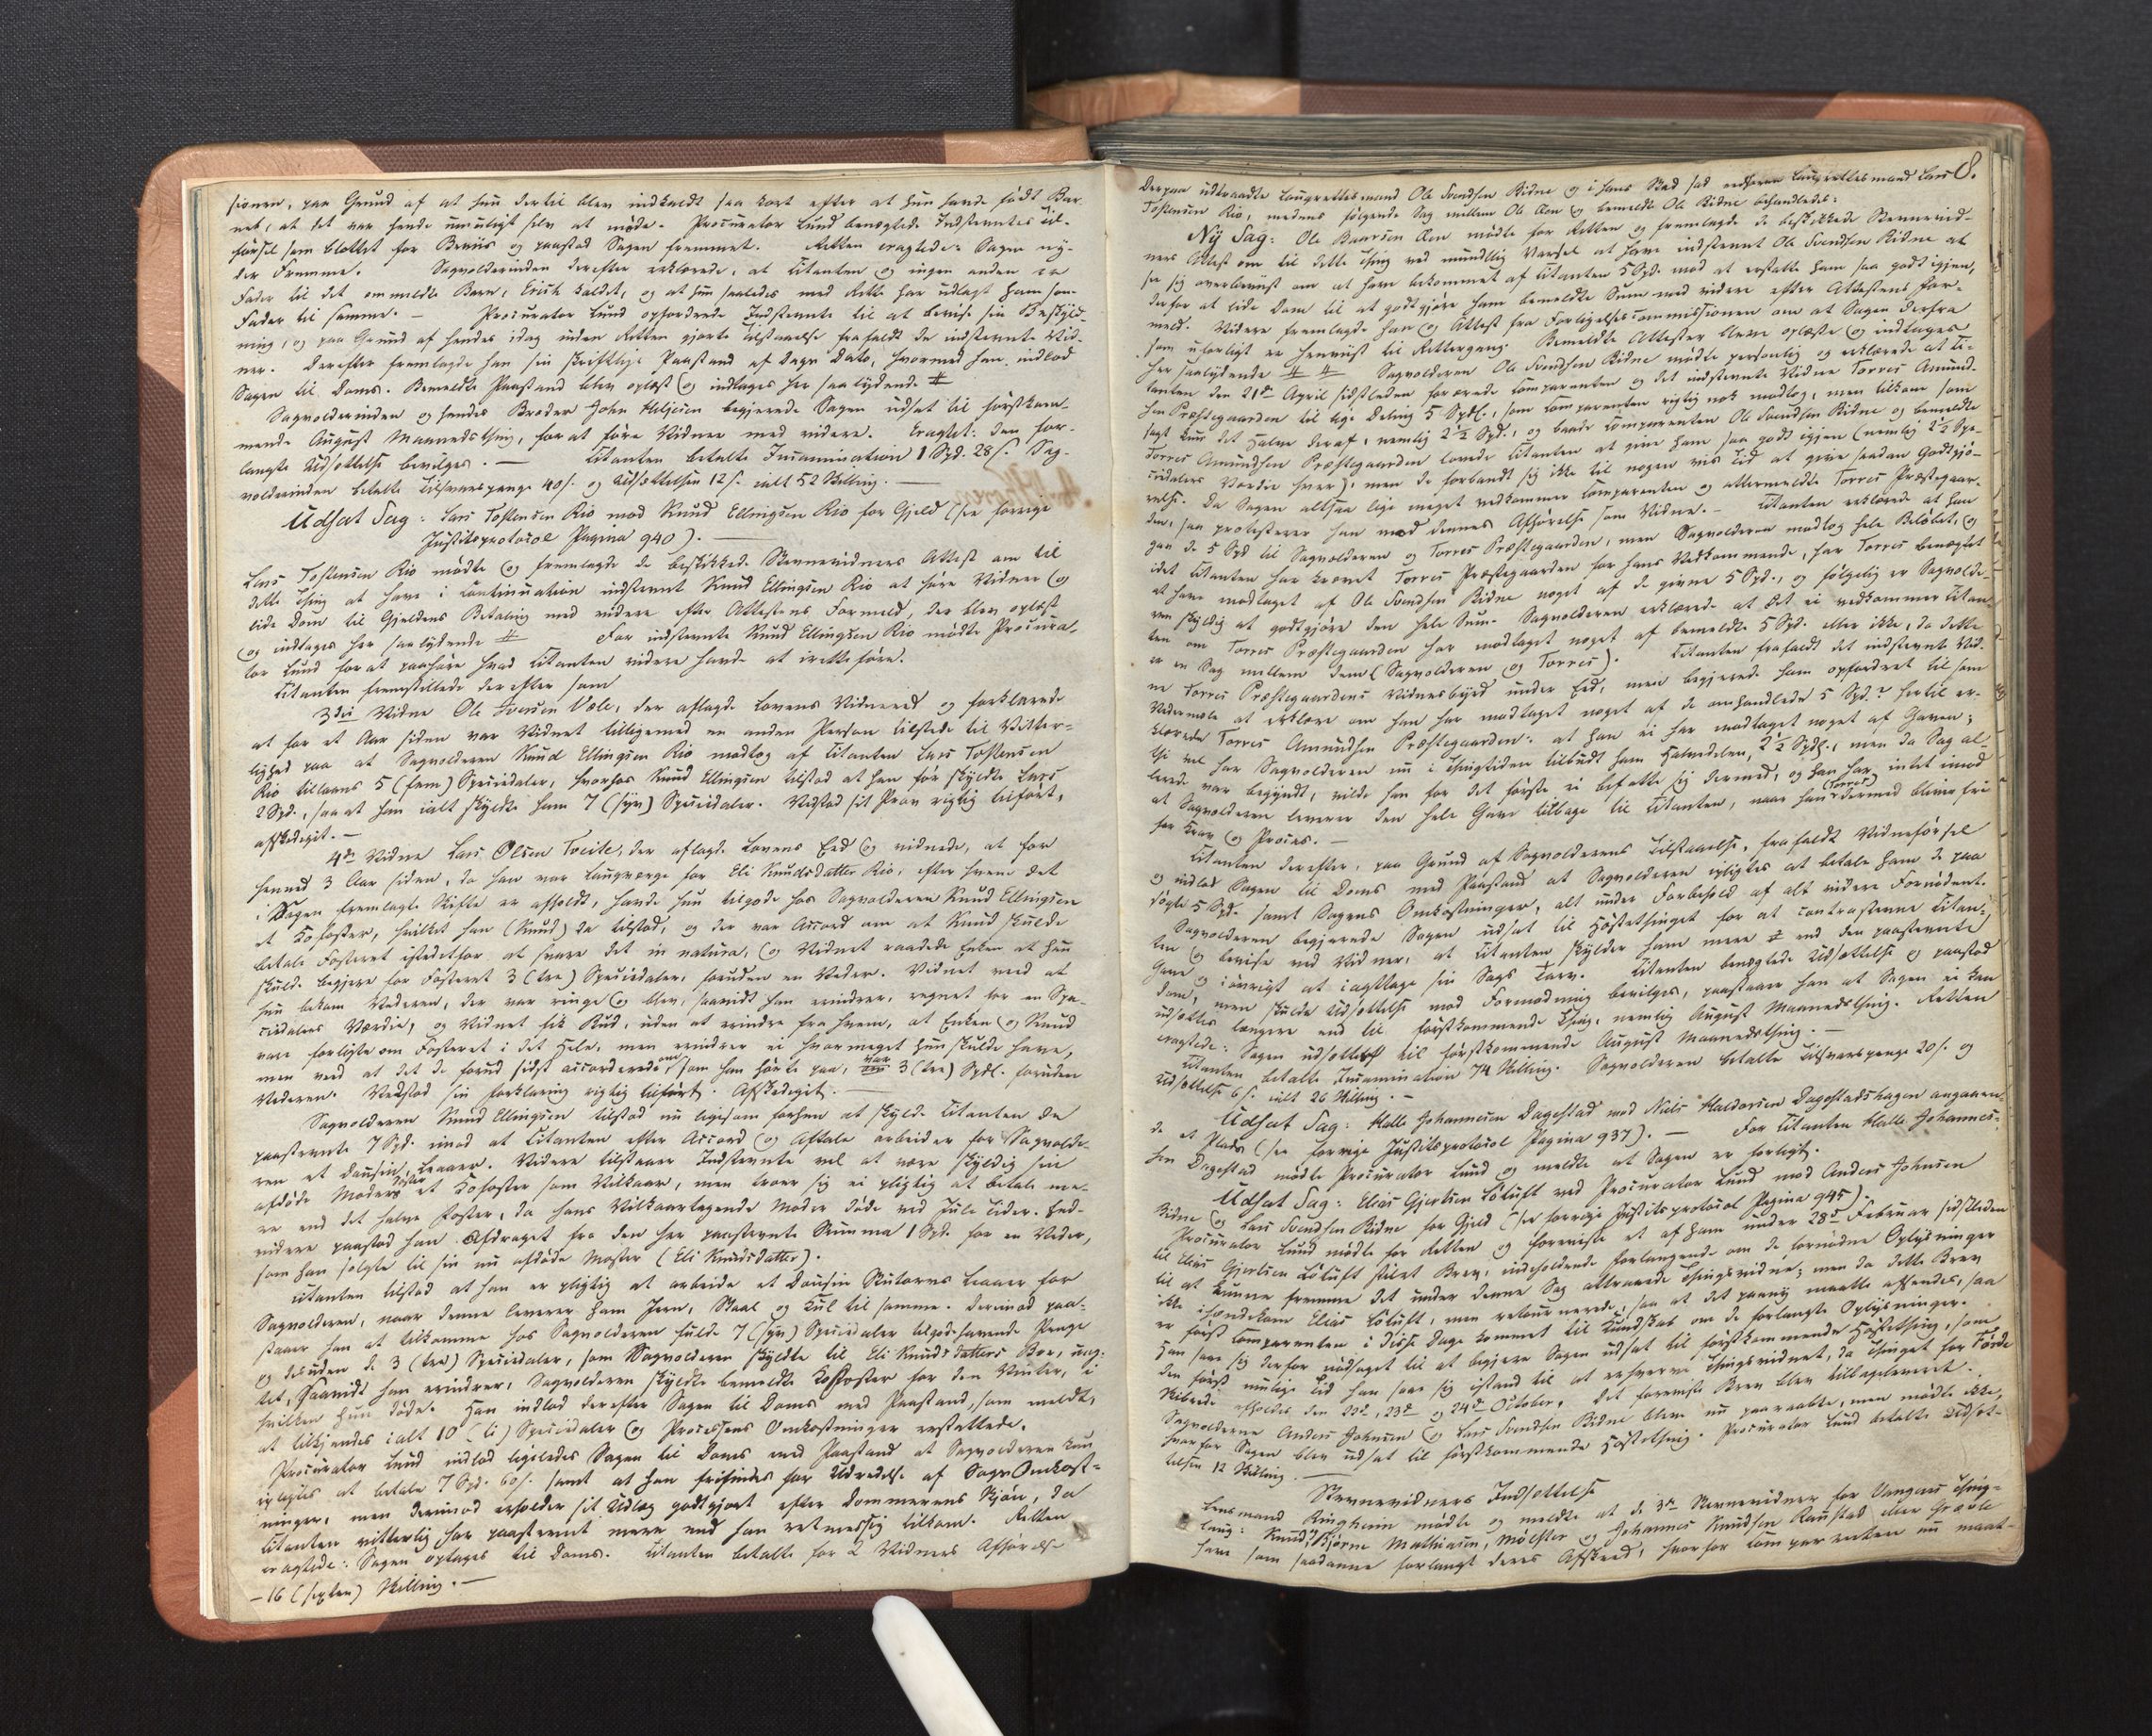 sionen, paa Grund af at hun dertil blev indkaldt saa kort efter at hun havde födt Bar-
net, at det var hende umuligt selv at möde. Procurator Lund benægtede Indstevntes Til-
försel som blottet for Beviis og paastod Sagen fremmet. Retten eragtede: Sagen ny-
der Fremme. Sagvolderinden derefter erklærede, at Citanten og ingen anden er
Fader til det ommeldte Barn, Erich kaldet, og at hun saaledes med Rette har udlagt ham som
Fader til samme. — Procurator Lund opfordrede Indstevnte til at bevise sin Beskyld-
ning, og paa Grund af hendes idag inden Retten gjorte Tilstaaelse frafaldt de indstevnte Vid-
ner. Derefter fremlagde han sin skriftlige Paastand af Dags Dato, hvormed han indlod
Sagen til Doms. Bemeldte Paastand blev oplæst og indtages her saalydende #
Sagvolderinden og hendes Broder John Heljesen begjerede Sagen udsat til förstkom-
mende August Maanedsthing, for at före Vidner med videre. Eragtet: den for-
langte Udsættelse bevilges. — Citanten betalte Incamination 1 Spd. 28 s. Sag-
volderinden betalte Tilsvarspenge 40 s. og Udsættelsen 12 s. ialt 52 Skilling. —
Udsat Sag: Lars Tostensen Rio mod Knud Ellingsen Rio for Gjeld (see forrige
Justitsprotocol Pagina 940). —
Lars Tostensen Rio mödte og fremlagde de beskikkede Stevnevidners Attest om til
dette Thing at have i Continuation indstevnt Knud Ellingsen Rio at höre Vidner og
lide Dom til Gjeldens Betaling med videre efter Attestens Formeld, der blev oplæst
og indtages her saalydende # For indstevnte Knud Ellingsen Rio mödte Procura-
tor Lund for at paahöre hvad Citanten videre havde at iretteföre.
Citanten fremstillede derefter som
3die Vidne Ole Iversen Væle, der aflagde Lovens Vidneeed og forklarede
at for et Aar siden var Vidnet tilligemed en anden Person tilstede til Vitter-
lighed paa at Sagvolderen Knud Ellingsen Rio modtog af Citanten Lars Tostensen
Rio tillaans 5 (fem) Speciedaler, hvorhos Knud Ellingsen tilstod at han för skyldte Lars
2 Spd., saa at han ialt skyldte ham 7 (syv) Speciedaler. Vedstod sit Prov rigtig tilfört,
afskediget. —
4de Vidne Lars Olsen Tveite, der aflagde Lovens Eed og vidnede, at for
henved 3 Aar siden, da han var Laugværge for Eli Knudsdatter Rio, efter hvem det
i Sagen fremlagte Skifte er afholdt, havde hun tilgode hos Sagvolderen Knud Ellingsen
et Kofoster, hvilket han (Knud) da tilstod, og der var Accord om at Knud skulde
betale Fosteret istedetfor at svare det in natura, og Vidnet raadede Enken at hun
skulde begjere for Fosteret 3 (tre) Speciedaler, foruden en Veder. Vidnet veed at
hun bekom Vederen, der var ringe og blev, saavidt han erindrer, regnet for en Spe-
ciedalers Værdie, og Vidnet fik Bud, uden at erindre fra hvem, at Enken og Knud
vare forligte om Fosteret i det Hele, men erindrer ei hvormeget hun skulde have,
men veed at det de forud sidst accorderede om, som han hörte paa, var 3 (tre) Spdl. foruden
Vederen. Vedstod sin Forklaring rigtig tilfört. Afskediget. —
Sagvolderen Knud Ellingsen tilstod nu ligesom forhen at skylde Citanten de
paastevnte 7 Spd. imod at Citanten efter Accord og Aftale arbeider for Sagvolde-
ren et Dousin Leaaer. Videre tilstaaer Indstevnte vel at være skyldig sin
afdöde Moders Söster et Kofoster som Vilkaar, men troer sig ei pligtig at betale me-
re end det halve Foster, da hans Vilkaartagende Moder döde ved Jule Tider. End-
videre paastod han Afdraget fra den her paastevnte Summa 1 Spd. for en Veder,
som han solgte til sin nu afdöde Moster (Eli Knudsdatter).
Citanten tilstod at han er pligtig at arbeide et Dousin Leaaer for
Sagvolderen, naar denne leverer ham Jern, Staal og Kul til samme. Derimod paa-
staaer han at tilkomme hos Sagvolderen fulde 7 (syv) Speciedaler tilgodehavende Penge
og desuden de 3 (tre) Speciedaler, som Sagvolderen skyldte til Eli Knudsdatters Boe,
tet, saavidt han erindrer, Sagvolderen skyldte bemeldte Kofoster for den Vinter, i
hvilken hun döde. Han indlod derefter Sagen til Doms med Paastand, som meldt,
at tilkjendes ialt 10 (ti) Speciedaler og Processens Omkostninger erstattede.
Procurator Lund indlod ligeledes Sagen til Doms med Paastand at Sagvolderen kun
ilægges at betale 7 Spd. 60 s. samt at han frifindes for Udredelse af Sagens Omkost-
ninger, men derimod erholder sit Udlæg godtgjort efter Dommerens Skjön, da
Citanten vitterlig har paastevnt mere end han retmessig tilkom. Retten
eragtede: Sagen optages til Doms. Citanten betalte for 2 Vidners Afhörelse
— 16 (sexten) Skilling. —
8.
Derpaa udtraadte Laugrettesmand Ole Svendsen Ridne og i hans Sted sad Laugrettesmand Lars
Tostensen Rio, medens fölgende Sag mellem Ole Øen og bemeldte Ole Ridne behandledes:
Ny Sag: Ole Baarsen Øen mödte for Retten og fremlagde de beskikkede Stevnevid-
ners Attest om til dette Thing ved mundtlig Varsel at have indstevnt Ole Svendsen Ridne at
see sig overbeviist om at have bekommet af Citanten 5 Spd. mod at erstatte ham saa godt igjen,
derfor at lide Dom til at godtgjöre ham bemeldte Sum med videre efter Attestens For-
meld. Videre fremlagde han og Attest fra Forligelsescommissionen om at Sagen derfra
som uforligt er henviist til Rettergang. Bemeldte Attester bleve oplæste og indtages
her saalydende # # Sagvolderen Ole Svendsen Ridne mödte personlig og erklærede at Ci-
tanten den 21de April sidstleden forærede Comparenten og det indstevnte Vidne Torres Amund-
sen Præstegaarden til lige Deling 5 Spdl., som Comparenten rigtig nok modtog, men tilkom som
sagt kun det Halve deraf, nemlig 2½ Spd., og baade Comparenten Ole Svendsen Ridne og bemeldte
Torres Amundsen Præstegaarden lovede Citanten at give ham saa godt igjen (nemlig 2½ Spe-
ciedalers Værdie hver), men de forbandt sig ikke til nogen vis Tid at give saadan Godtgjö-
relse. Da Sagen altsaa lige meget vedkommer Comparenten og altermeldte Torres Præstegaar-
den, saa protesterer han mod dennes Afhörelse som Vidne. — Citanten erklærede at han
gav de 5 Spd til Sagvolderen og Torres Præstegaarden, men Sagvolderen modtog hele Belöbet, og
idet Citanten har krævet Torres Præstegaarden for hans Vedkommende, har Torres benægtet
at have modtaget af Ole Svendsen Ridne noget af de givne 5 Spd., og fölgelig er Sagvolde-
ren skyldig at godtgjöre den hele Sum. Sagvolderen erklærede at det ei vedkommer Citan-
ten om Torres Præstegaarden har modtaget noget af bemeldte 5 Spd. eller ikke, da dette
er en Sag mellem dem (Sagvolderen og Torres). Citanten frafaldt det indstevnte Vid-
ne Torres Præstegaardens Vidnesbyrd under Eed, men begjerede ham opfordret til som
Vedermæle at erklære om han har modtaget noget af de omhandlede 5 Spd.? hertil er-
klærede Torres Amundsen Præstegaarden: at han ei har modtaget noget af Gaven;
thi vel har Sagvolderen nu i Thingtiden tilbudt ham Halvdelen, 2½ Spdl., men da Sag al-
lerede var begyndt, vilde han for det förste ei befatte sig dermed, og han har intet imod
at Sagvolderen leverer den hele Gave tilbage til Citanten, naar han (Torres) dermed bliver fri
for Krav og Proces. —
Citanten derefter, paa Grund af Sagvolderens Tilstaaelse, frafaldt Vidneförsel
og indlod Sagen til Doms med Paastand at Sagvolderen ilægges at betale ham de paa
sögte 5 Spd. samt Sagens Omkostninger, alt under Forbehold af alt videre Fornödent.
Sagvolderen begjerede Sagen udsat til Höstethinget for at contrastevne Citan-
ten og bevise ved Vidner, at Citanten skylder ham mere end den paastevnte
Gave og iövrigt at iagttage sin Sags Tarv. Citanten benægtede Udsættelse og paastod
Dom, men skulde Udsættelse mod Formodning bevilges, paastaaer han at Sagen ei kan
udsættes længere end til förstkommende Thing, nemlig August Maanedsthing. Retten
eragtede: Sagen udsættes til förstkommende August Maanedsthing. —
Citanten betalte Incamination 74 Skilling. Sagvolderen betalte Tilsvarspenge 20 s. og
Udsættelse 6 s. ialt 26 Skilling. —
Udsat Sag: Halle Johannesen Dagestad mod Niels Haldorsen Dagestadshagen angaaen-
de et Plads (see forrige Justitsprotocol Pagina 937). — For Citanten Halle Johannes-
sen Dagestad mödte Procurator Lund og meldte at Sagen er forligt.
Udsat Sag: Elias Gjertsen Lötuft ved Procurator Lund mod Anders Johnsen
Ridne og Lars Svendsen Ridne for Gjeld (see forrige Justitsprotocol Pagina 945).
Procurator Lund mödte for Retten og foreviste et af ham under 28de Februar sidstleden
til Elias Gjertsen Lötuft skrevet Brev, indeholdende Forlangende om de fornödne Oplysninger
til at kunne fremme det under denne Sag attraaede Thingsvidne; men da dette Brev
ikke ihændekom Elias Lötuft, men retournerede, saa at det paany maatte afsendes, saa
er först Comparenten i disse Dage kommet til Kundskab om de forlangte Oplysninger.
Han saae sig derfor nödsaget til at begjere Sagen udsat til förstkommende Höstething, som
den först mulige Tid han saae sig istand til at erhverve Thingsvidnet, da Thinget for Förde
Skibrede afholdes den 22de, 23de og 24de October. Det foreviste Brev blev tilbageleveret.
Sagvolderne Anders Johnsen og Lars Svendsen Ridne bleve nu paaraabte, men mödte ikke,
hvorfor Sagen blev udsat til förstkommende Höstething. Procurator Lund betalte Udsæt-
telsen 12 Skilling. —
Stevnevidners Indsættelse
Lensmand Ringheim mödte og meldte at de 3de Stevnevidner for Vangens Thing-
laug: Knud Bjørne Mathiasen, Mölster og Johannes Knudsen Raustad eller Gravle
have som saadanne forlangt deres Afskeed, hvorfor Comparenten nu maat-